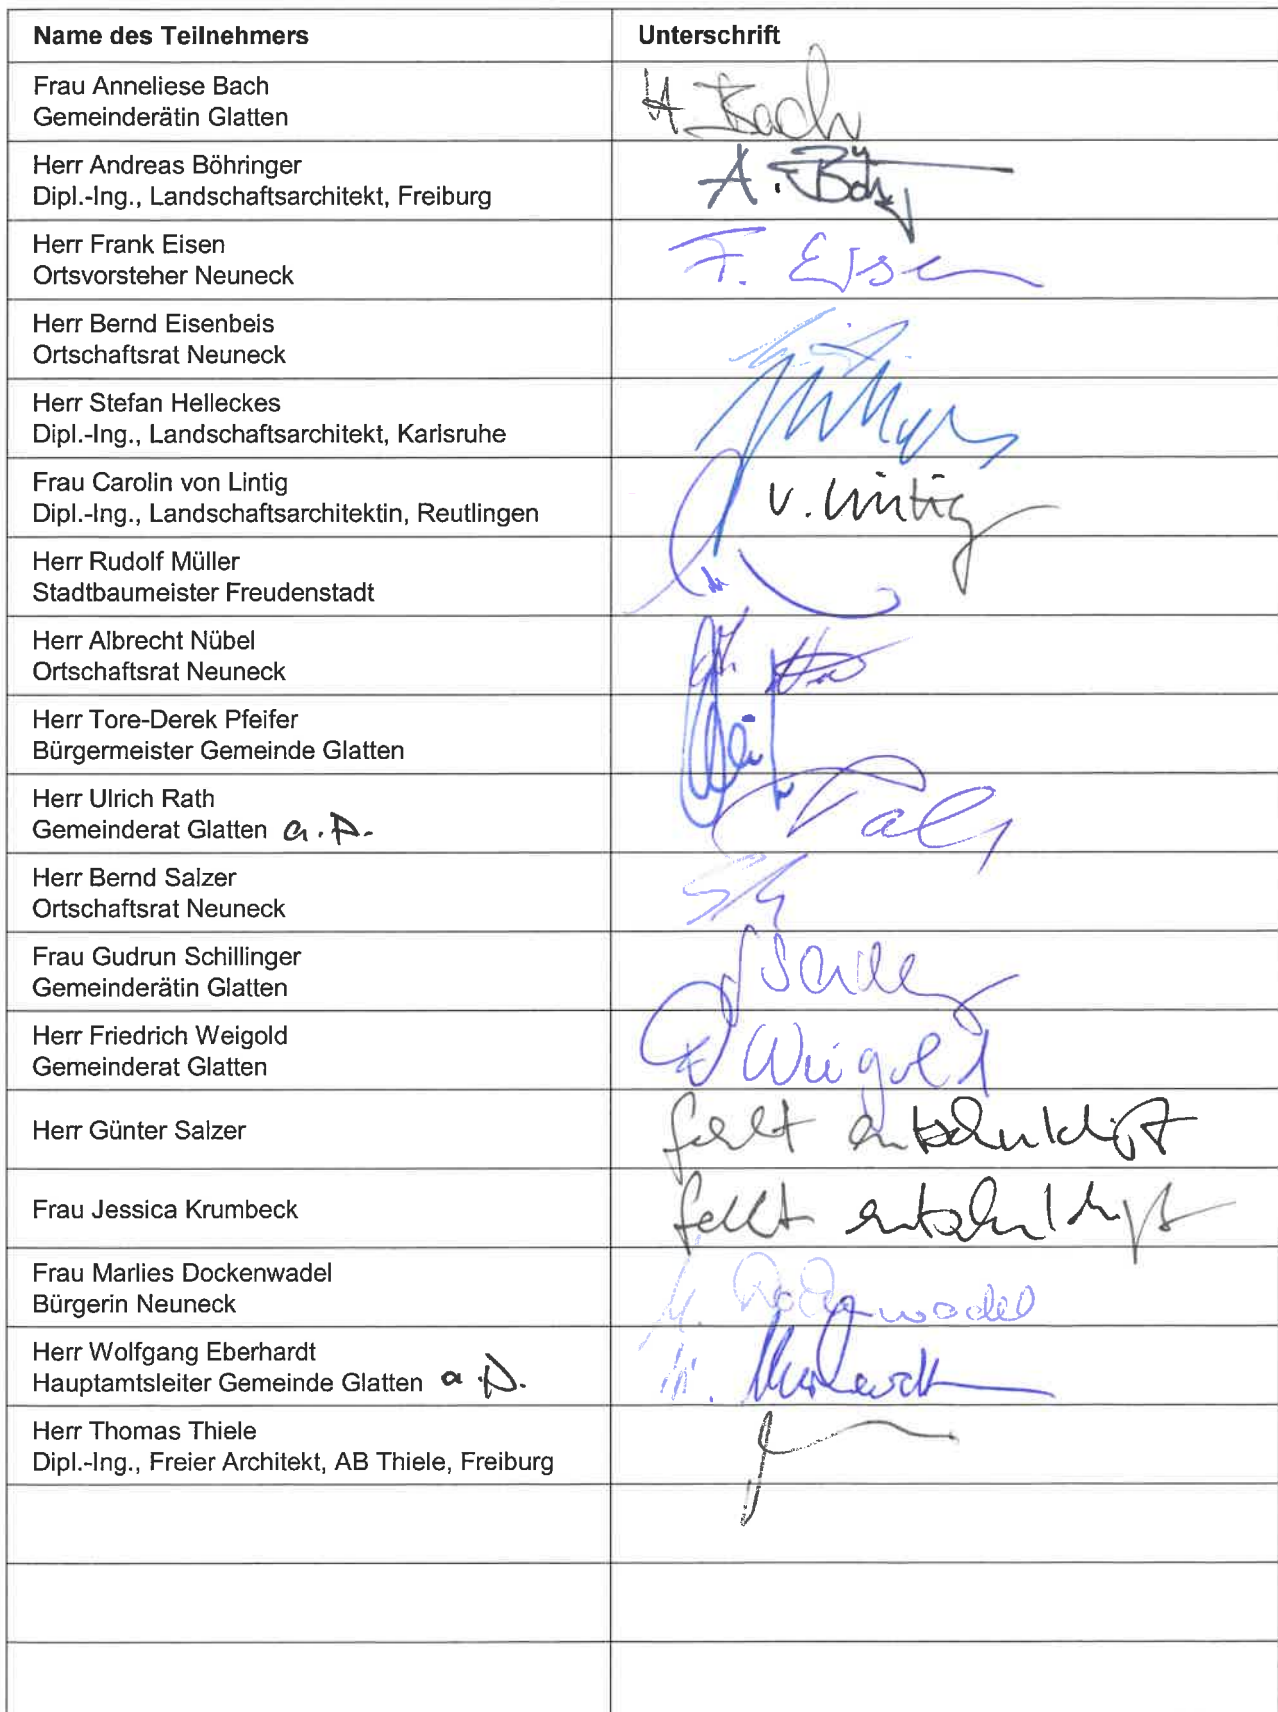 Name des Teilnehmers Unterschrift
Frau Anneliese Bach
Gemeinderätin Glatten
Bach
Herr Andreas Böhringer
Dipl.-Ing., Landschaftsarchitekt, Freiburg
A. Bö
Herr Frank Eisen
Ortsvorsteher Neuneck
F. Eisen
Herr Bernd Eisenbeis
Ortschaftsrat Neuneck
Herr Stefan Helleckes
Dipl.-Ing., Landschaftsarchitekt, Karlsruhe
Frau Carolin von Lintig
Dipl.-Ing., Landschaftsarchitektin, Reutlingen
v. Lintig
Herr Rudolf Müller
Stadtbaumeister Freudenstadt
Herr Albrecht Nübel
Ortschaftsrat Neuneck
Herr Tore-Derek Pfeifer
Bürgermeister Gemeinde Glatten
Herr Ulrich Rath
Gemeinderat Glatten a.D.
Herr Bernd Salzer
Ortschaftsrat Neuneck
Frau Gudrun Schillinger
Gemeinderätin Glatten
Herr Friedrich Weigold
Gemeinderat Glatten
Weigold
Herr Günter Salzer
fehlt entschuldigt
Frau Jessica Krumbeck
fehlt entschuldigt
Frau Marlies Dockenwadel
Bürgerin Neuneck
M. Dockenwadel
Herr Wolfgang Eberhardt
Hauptamtsleiter Gemeinde Glatten a.D.
Herr Thomas Thiele
Dipl.-Ing., Freier Architekt, AB Thiele, Freiburg